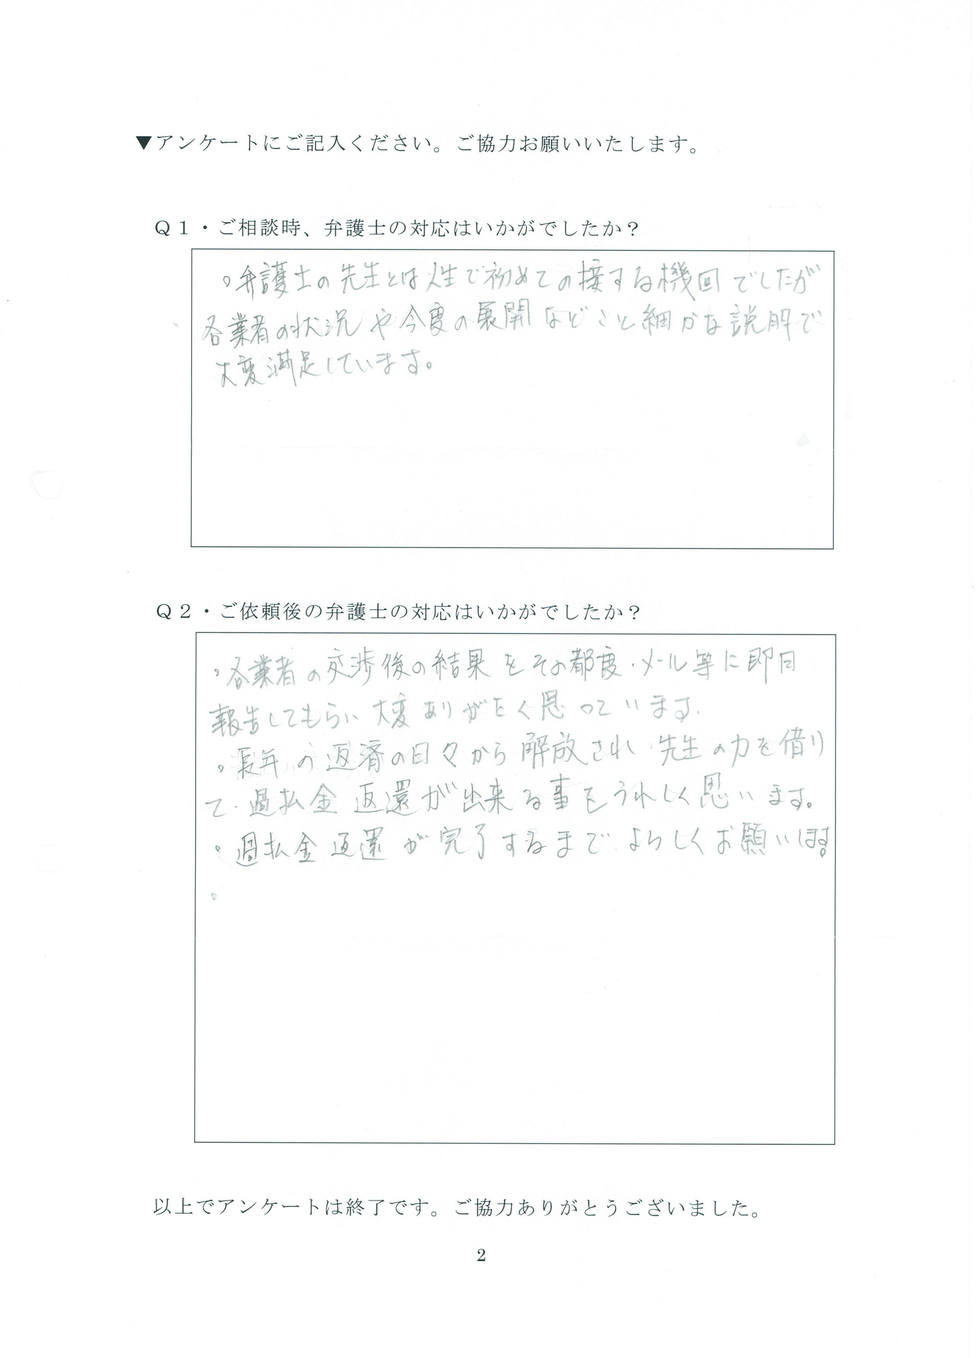 ▼アンケートにご記入ください。ご協力お願いいたします。
Q1・ご相談時、弁護士の対応はいかがでしたか？
。弁護士の先生とは人生で初めての接する機回でしたが
各業者の状況や今度の展開などこと細かな説明で
大変満足しています。
Q2・ご依頼後の弁護士の対応はいかがでしたか？
。各業者の交渉後の結果をその都度・メール等に即日
報告してもらい大変ありがたく思っています.
。長年の返済の日々から解放され.先生の力を借り
て.過払金返還が出来る事をうれしく思います。
。過払金返還が完了するまで.よろしくお願います。
。
以上でアンケートは終了です。ご協力ありがとうございました。
2